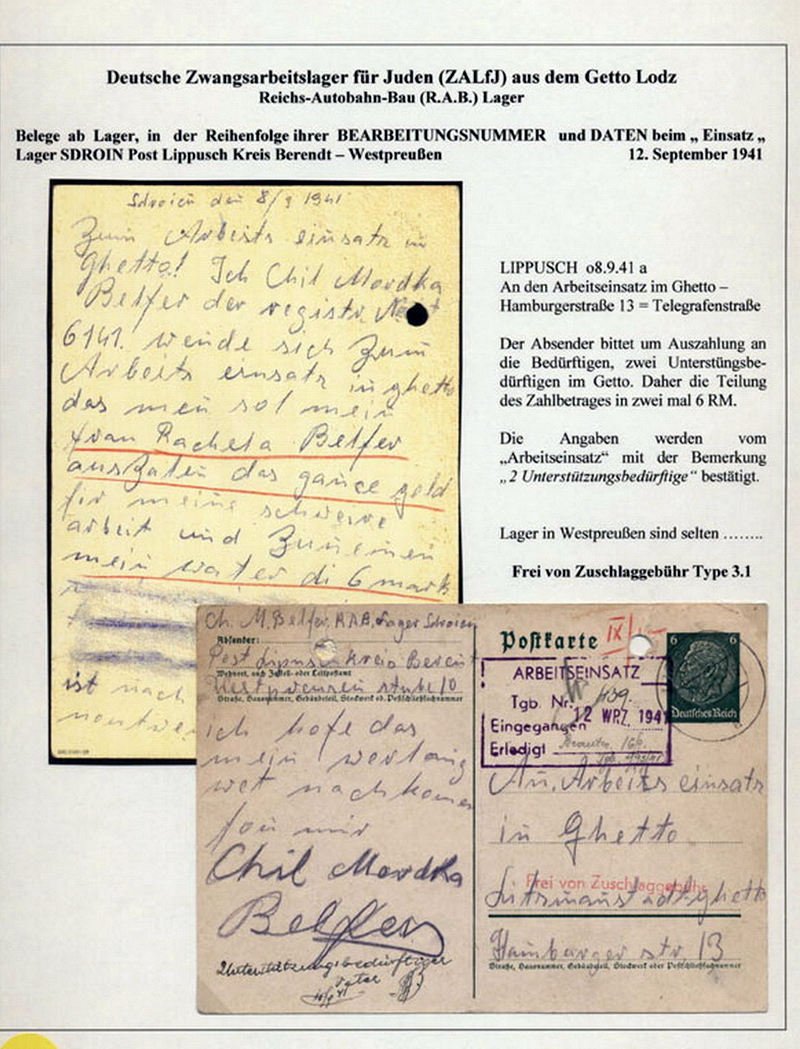 Deutsche Zwangsarbeitslager für Juden (ZALfJ) aus dem Getto Lodz
Reichs-Autobahn-Bau (R.A.B.) Lager
Belege ab Lager, in der Reihenfolge ihrer BEARBEITUNGSNUMMER und DATEN beim „ Einsatz „
Lager SDROIN Post Lippusch Kreis Berendt – Westpreußen 12. September 1941
Sdroien den 8/9 1941
Zum Arbeits einsatz in
Ghetto! Ich Chil Mordka
Belfer der registr
6141. wende sich Zum
Arbeits einsatz in ghetto
das men sol mein
frau Rachela Belfer
auszalen das gance geld
fir meine schwere
arbeit und Zu einen
mein vater di 6 mark
ist nach
LIPPUSCH o8.9.41 a
An den Arbeitseinsatz im Ghetto –
Hamburgerstraße 13 = Telegrafenstraße
Der Absender bittet um Auszahlung an
die Bedürftigen, zwei Unterstüngsbe-
dürftigen im Getto. Daher die Teilung
des Zahlbetrages in zwei mal 6 RM.
Die Angaben werden vom
„Arbeitseinsatz“ mit der Bemerkung
„2 Unterstützungsbedürftige“ bestätigt.
Lager in Westpreußen sind selten ……..
Frei von Zuschlaggebühr Type 3.1
Ch. M. Belfer. R.A.B. Lager Sdroien
Absender:
Post Lipusz kreis Berent
Wohnort, auch Zustell- oder Leitpostamt
Westpreusein stube 10
Straße, Hausnummer, Gebäudeteil, Stockwerk od. Postschließfachnummer
ich hofe das
mein verlang
wet nachkomen
fon mir
Chil Mordka
Belfer
2 Unterstützungsbedürftiger
Vater
Postkarte
IX/
6 6
Deutsches Reich
ARBEITSEINSATZ
Tgb. Nr. 439
Eingegangen 12 WRZ. 1941
Erledigt
An. Arbeits einsatz
in Ghetto
Frei von Zuschlaggebühr
Litzmanstadt ghetto
Hamburger str. 13
Straße, Hausnummer, Gebäudeteil, Stockwerk oder Postschließfachnummer